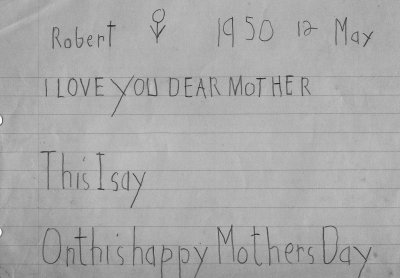 Robert 1950 12 May
I LOVE YOU DEAR MOTHER
This I say
On this happy Mothers Day